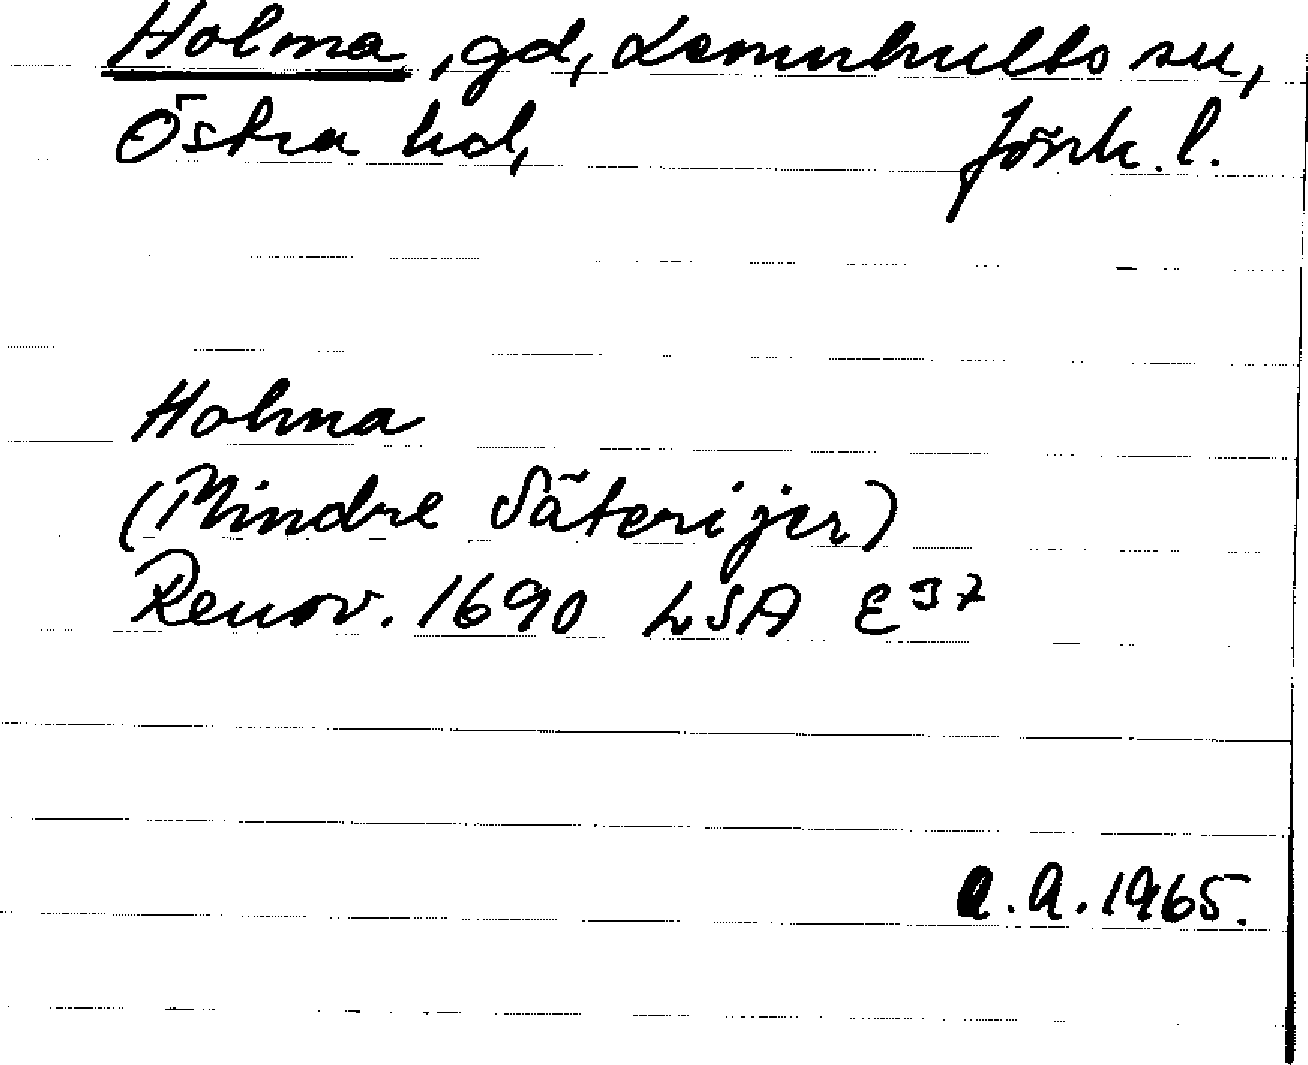 Holma, gd, Lannhults sn,
Östra hd, Jönk. l.
Holma
(Mindre Säterijer)
Renov. 1690 LSA E 37
A.A. 1965.